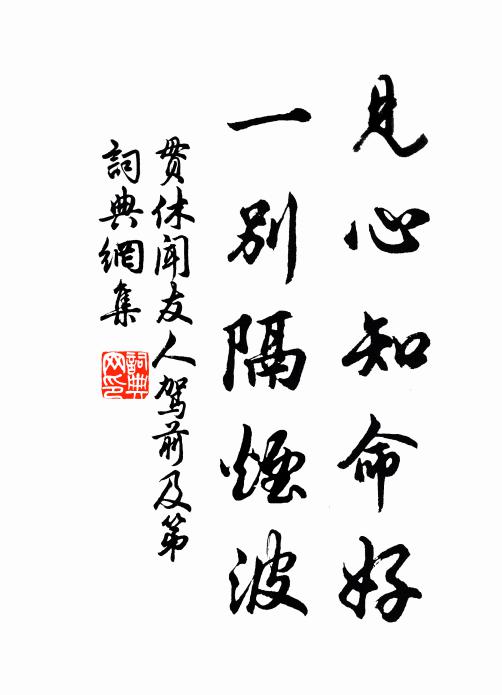 見心知命好
一別隔煙波
貫休聞友人駕前及第
詞典網集
詞典網印